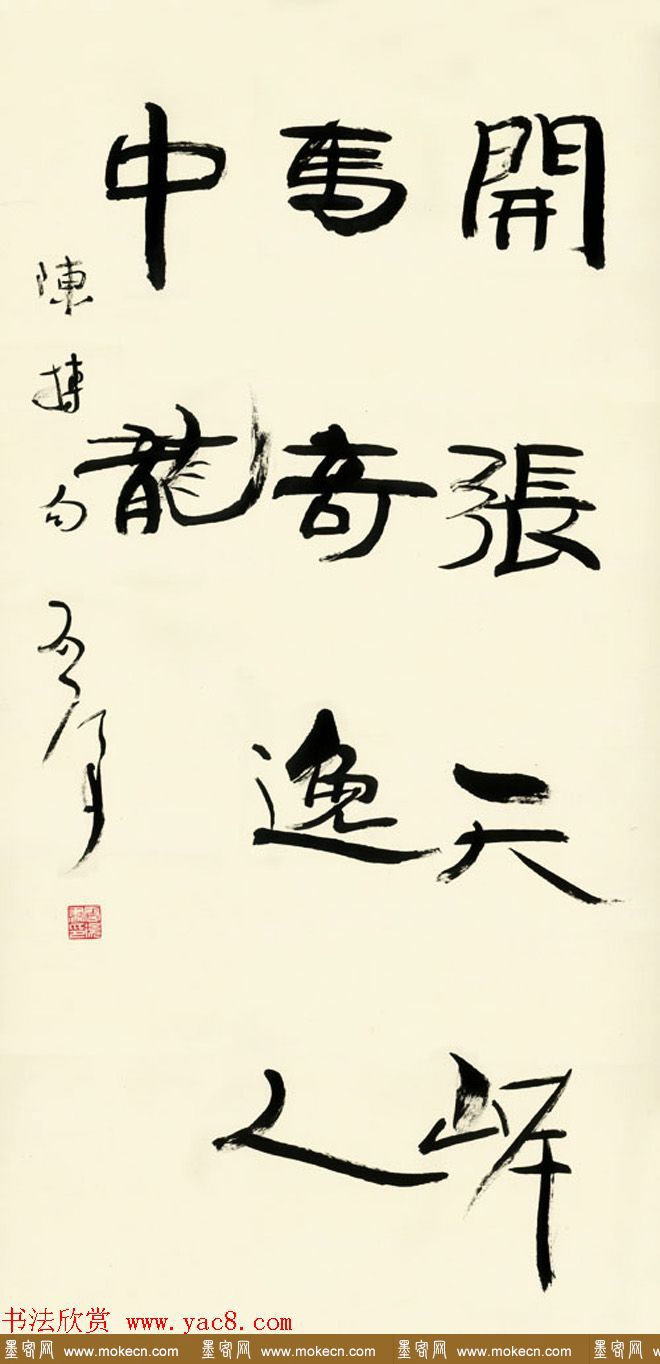 開張天岸
馬奇逸人
中龍
陳摶句
书法欣赏 www.yac8.com
墨客网 www.mokecn.com 墨客网 www.mokecn.com 墨客网 www.mokecn.com 墨客网 w